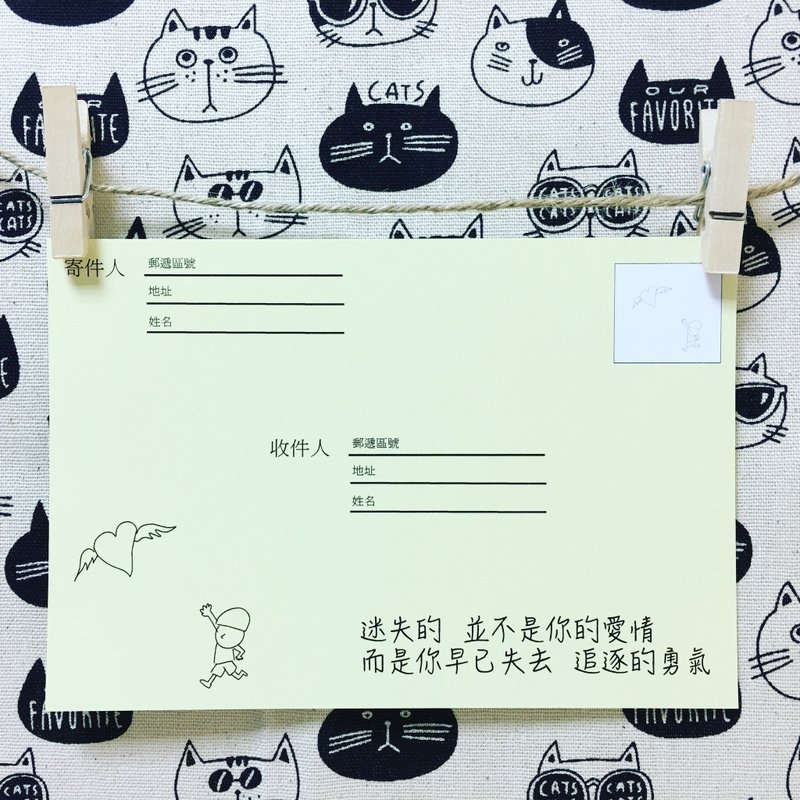 CATS
OUR
FAVORITE
OUR
FAVORITE
CATS
CATS
CATS CATS
CATS CATS
寄件人
郵遞區號
地址
姓名
收件人
郵遞區號
地址
姓名
迷失的 並不是你的愛情
而是你早已失去 追逐的勇氣
FAVORITE
FAVORITE
CATS
CATS CATS